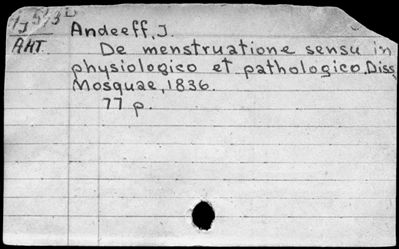 Andeeff, J.
AHT.
De menstruatione sensu in
physiologico et pathologico. Diss.
Mosquae, 1836.
77 p.